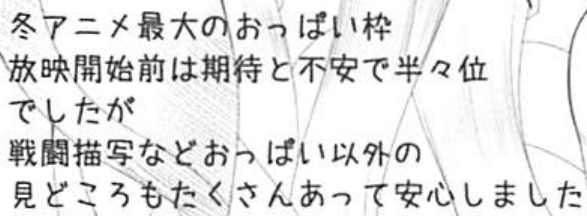 冬アニメ最大のおっぱい枠
放映開始前は期待と不安で半々位
でしたが
戦闘描写などおっぱい以外の
見どころもたくさんあって安心しました